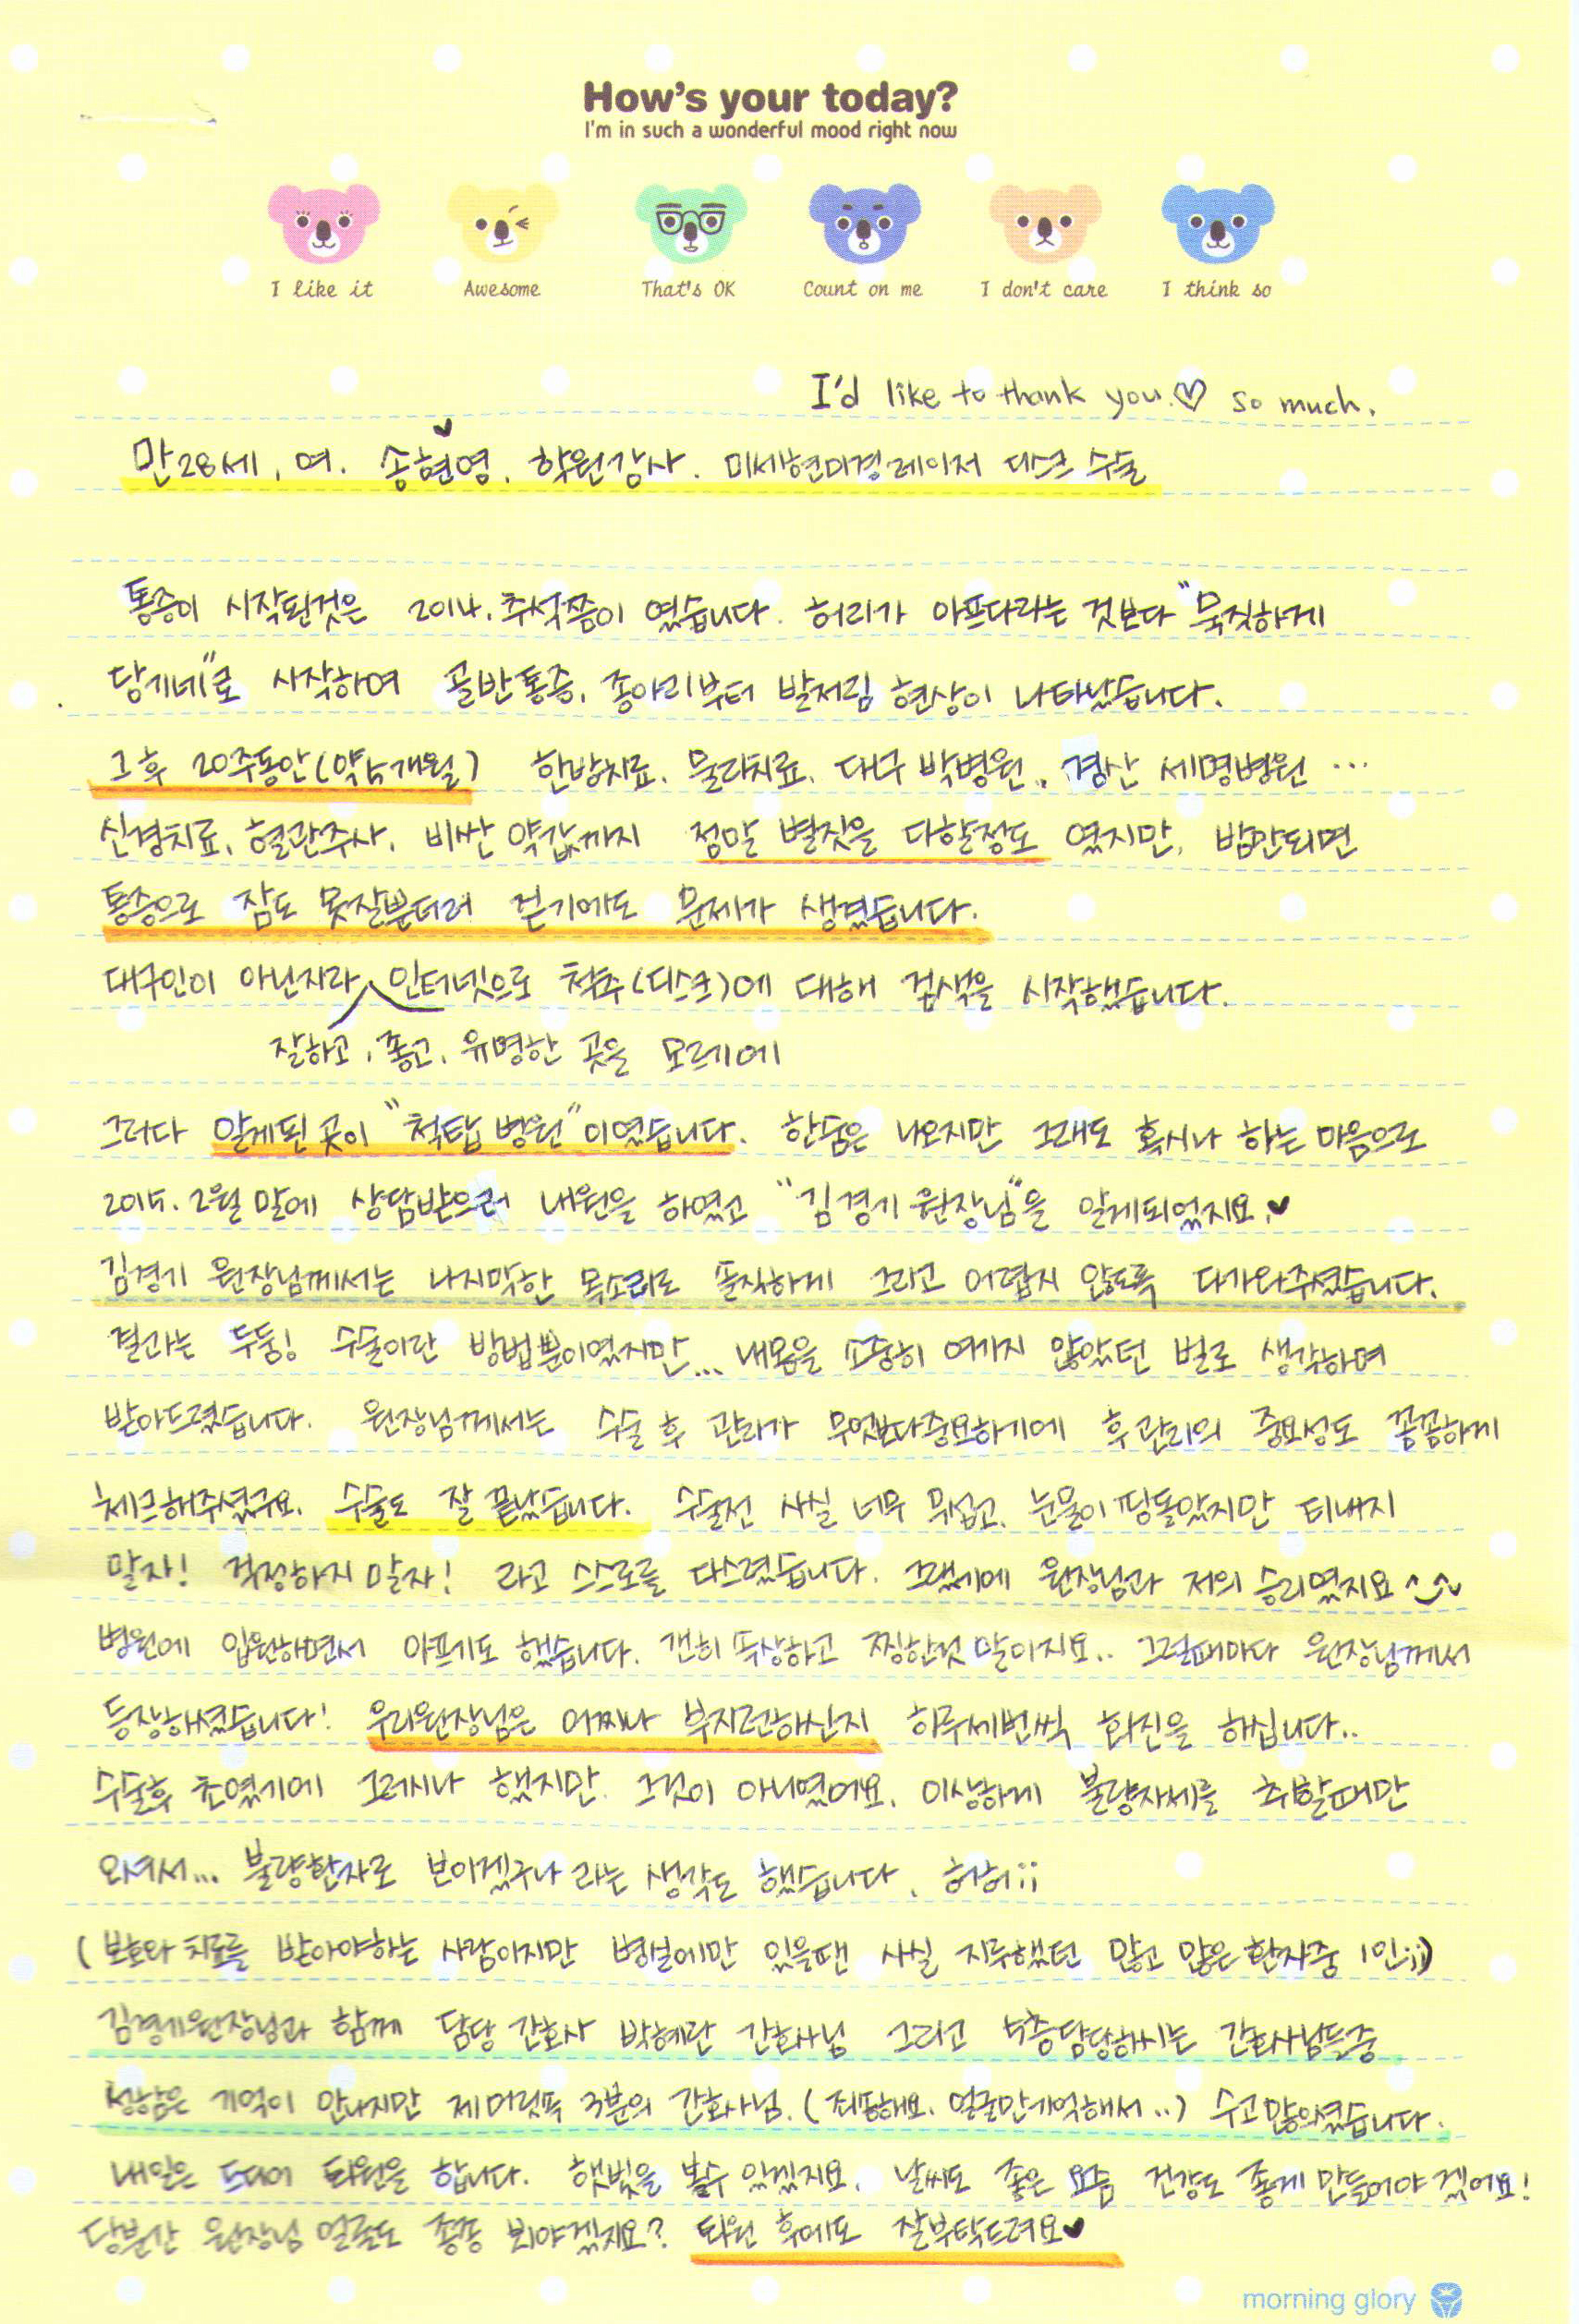 How's your today?
I'm in such a wonderful mood right now
I like it Awesome That's OK Count on me I don't care I think so
I'd like to thank you.♡ so much.
만28세, 여. 송현영. 학원강사. 미세현미경레이저 디스크 수술
통증이 시작된것은 2014.추석쯤이 였습니다. 허리가 아프다라는 것보다 "묵직하게
당기네"로 시작하여 골반통증, 종아리부터 발저림 현상이 나타났습니다.
그후 20주동안(약5개월) 한방치료, 물리치료, 대구 박병원, 경산 세명병원 ...
신경치료, 혈관주사, 비싼 약값까지 정말 별짓을 다할정도 였지만, 밤만되면
통증으로 잠도 못잘뿐더러 걷기에도 문제가 생겼습니다.
대구인이 아닌지라 인터넷으로 척추(디스크)에 대해 검색을 시작했습니다.
잘하고, 좋고, 유명한 곳을 모르기에
그러다 알게된 곳이 "척탑병원"이였습니다. 한숨은 나오지만 그래도 혹시나 하는 마음으로
2015. 2월 말에 상담받으러 내원을 하였고 "김경기 원장님"을 알게되었지요.♥
김경기 원장님께서는 나지막한 목소리로 솔직하게 그리고 어렵지 않도록 다가와주셨습니다.
결과는 두둥! 수술이란 방법뿐이였지만... 내몸을 소중히 여기지 않았던 벌로 생각하며
받아드렸습니다. 원장님께서는 수술 후 관리가 무엇보다중요하기에 후관리의 중요성도 꼼꼼하게
체크해주셨구요. 수술도 잘 끝났습니다. 수술전 사실 너무 무섭고, 눈물이핑돌았지만 티내지
말자! 걱정하지말자! 라고 스스로를 다스렸습니다. 그랬기에 원장님과 저의 승리였지요
병원에 입원하면서 아프기도 했습니다. 갠히 속상하고 찡한것 말이지요.. 그럴때마다 원장님께서
등장하셨습니다! 우리원장님은 어찌나 부지런하신지 하루세번씩 회진을 하십니다..
수술후 초였기에 그러시나 했지만. 그것이 아니였어요. 이상하게 불량자세를 취할때만
오셔서... 불량환자로 보이겠구나 라는 생각도 했습니다. 하하;;
(보호와 치료를 받아야하는 사람이지만 병실에만 있을땐 사실 지루했던 많고 많은환자중 1인;;)
김경기원장님과 함께 담당 간호사 박혜란 간호사님 그리고 5층담당하시는 간호사님들중
성함은 기억이 안나지만 제머릿쪽 3분의 간호사님.(죄송해요. 얼굴만기억해서..) 수고많으셨습니다.
내일은 드디어 퇴원을 합니다. 햇빛을 볼수 있겠지요. 날씨도 좋은 요즘 건강도 좋게만들어야겠어요!
당분간 원장님 얼굴도 종종 뵈야겠지요? 퇴원 후에도 잘부탁드려요♥
morning glory